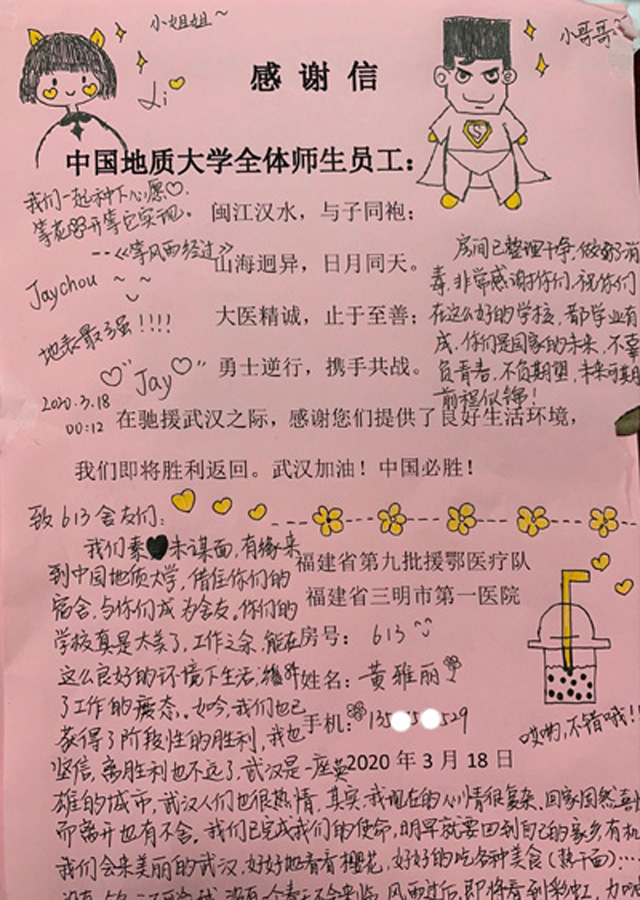 小姐姐~
小哥哥~
Li
感谢信
中国地质大学全体师生员工：
我们一起种下心愿♡
等花开等它实现。
--《等风雨经过》
Jaychou ~ ~
地表最强!!!!
♡"Jay♡"
2020.3.18
00:12
闽江汉水，与子同袍；
山海迥异，日月同天。
大医精诚，止于至善；
勇士逆行，携手共战。
房间已整理干净,做好了消
毒,非常感谢你们,祝你们
在这么好的学校,都学业有
成,你们是国家的未来,不辜
负青春,不负期望,未来可期
前程似锦!
在驰援武汉之际，感谢您们提供了良好生活环境，
我们即将胜利返回。武汉加油！中国必胜！
致613舍友们:
我们素未谋面,有缘来
到中国地质大学,借住你们的
宿舍,与你们成为舍友。你们的
学校真是太美了,工作之余,能在
这么良好的环境下生活,缓解
了工作的疲态。如今,我们也已
获得了阶段性的胜利,我也
坚信,离胜利也不远了,武汉是一座英
雄的城市,武汉人们也很热情,其实,我现在的心情很复杂,回家固然喜
而离开也有不舍,我们已完成我们的使命,明早就要回到自己的家乡,有机
我们会来美丽的武汉,好好地看看樱花,好好的吃各种美食(热干面)…
福建省第九批援鄂医疗队
福建省三明市第一医院
房号：613
姓名：黄雅丽
手机：135 5 529
2020年3月18日
哎哟,不错哦!!
风雨过后,即将看到彩虹,